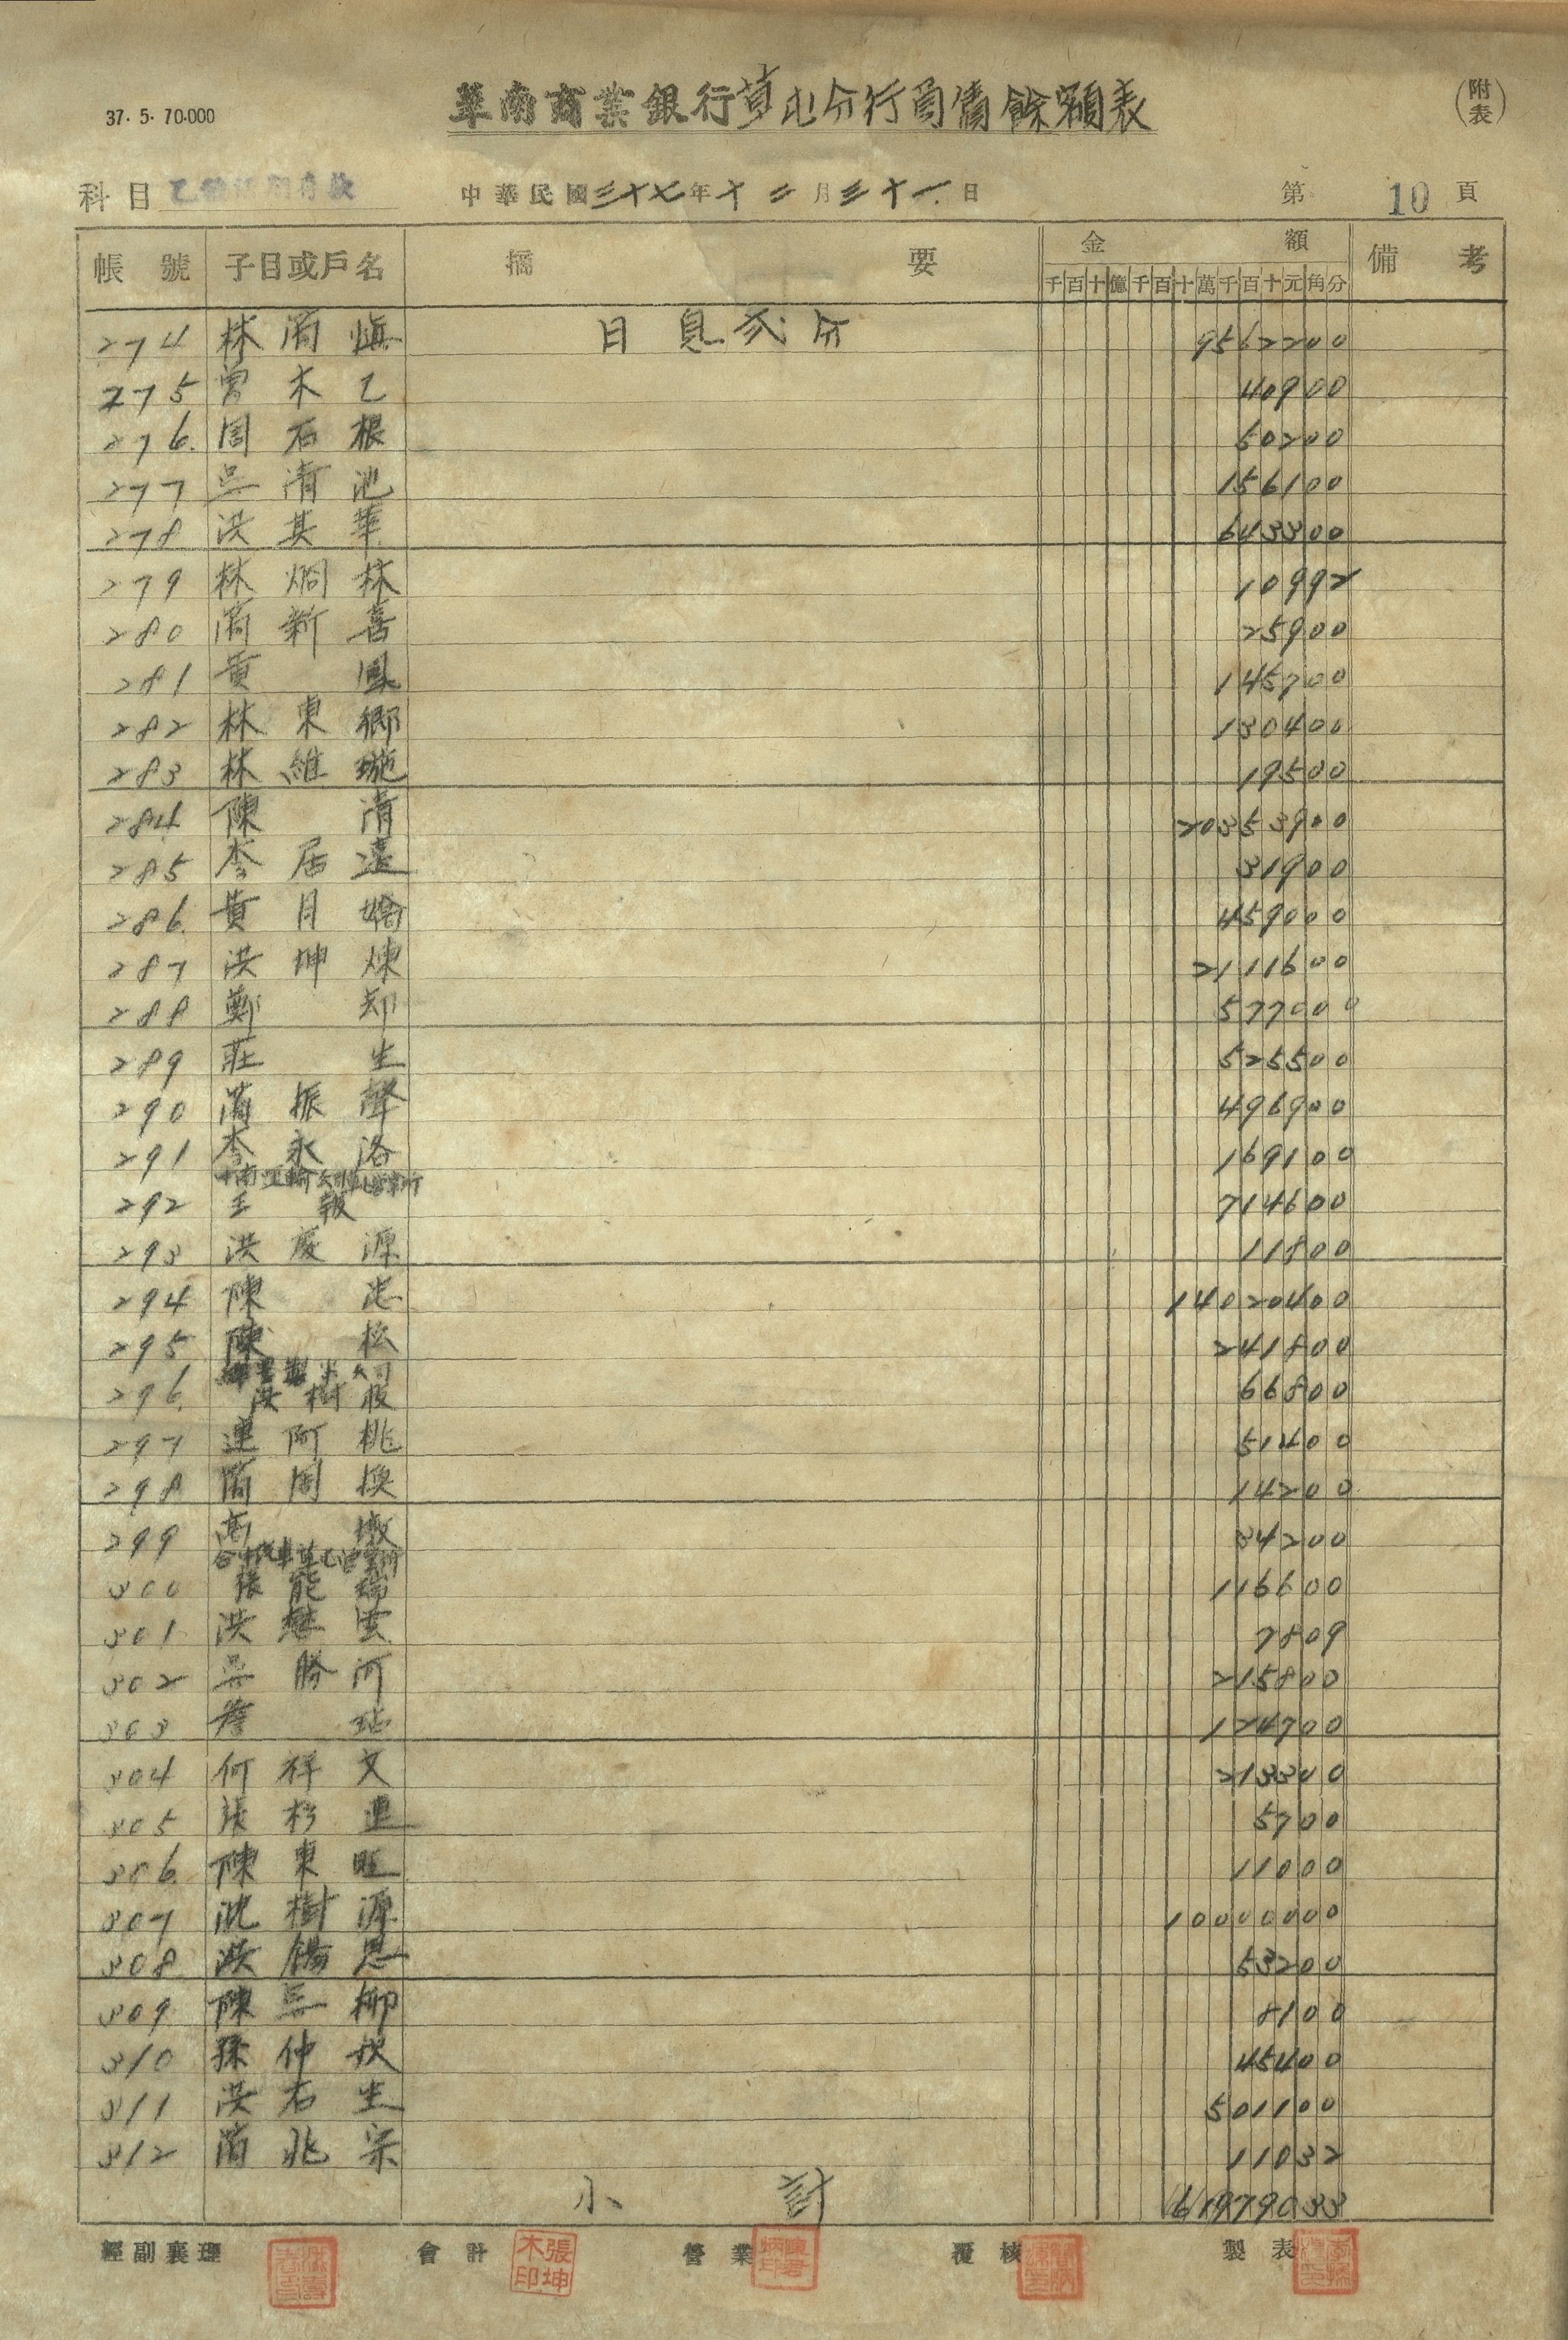 37. 5. 70.000
華南商業銀行草屯分行負債餘額表
(附表)
科目 乙種活期存款 中華民國三十七年十二月三十一日 第10頁
帳號 子目或戶名 摘要 金額 備考
千百十億千百十萬千百十元角分
274 林 慎 日息弍分 9562200
275 曾木乙 40900
276. 周石根 50200
277 吳清池 156100
278 洪其華 643300
279 林烱林 10992
280 新喜 25900
281 黃鳳 145700
282 林東鄉 130400
283 林維 19500
284 陳清 20353900
285 李居遠 31900
286. 黃月嬌 459000
287 洪坤煉 2111600
288 鄭却 577000
289 莊生 525500
290 振聲 496900
291 李永洛 169100
292 王報 714600
293 洪慶源 11800
294 陳忠 14020400
295 陳松 241800
296. 洪樹 66800
297 連阿桃 51400
298 周換 14200
299 高 34200
300 張能瑞 116600
301 洪 雲 7809
302 吳勝河 215800
303 詹 124700
304 何祥文 213300
305 張杉連 5700
306. 陳東旺 11000
307 沈樹源 10000000
308. 洪錫恩 53200
309 陳 柳 8100
310 孫仲 45400
311 洪石生 501100
312 兆宗 11032
小計 61979033
經副襄理 會計 張坤木印 營業 覆核 製表